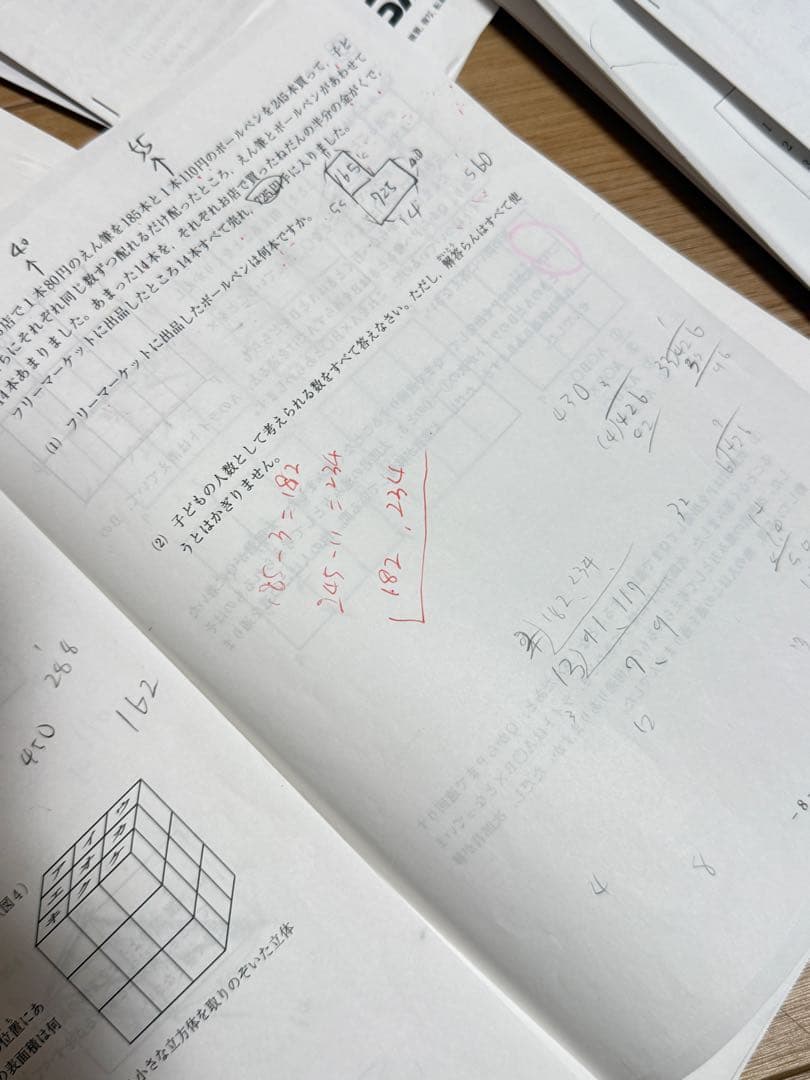 店で1本80円のえん筆を185本と1本110円のボールペンを245本買って、子ど
ちにそれぞれ同じ数ずつ配れるだけ配ったところ、えん筆とボールペンがあわせて
14本あまりました。あまった14本を、それぞれお店で買ったねだんの半分の金がくで、
フリーマーケットに出品したところ14本すべて売れ、725円手に入りました。
(1) フリーマーケットに出品したボールペンは何本ですか。
(2) 子どもの人数として考えられる数をすべて答えなさい。ただし、解答らんはすべて使
うとはかぎりません。
40
55
165
725
40
55
14
560
185-3=182
245-11=234
182, 234
430
14)426
33)426
32
2)182, 234
13)91, 117
7, 9
4
8
288
450
162
図4)
ア イ ウ
エ オ カ
キ ク ケ
小さな立方体を取りのぞいた立体
位置にあ
の表面積は何